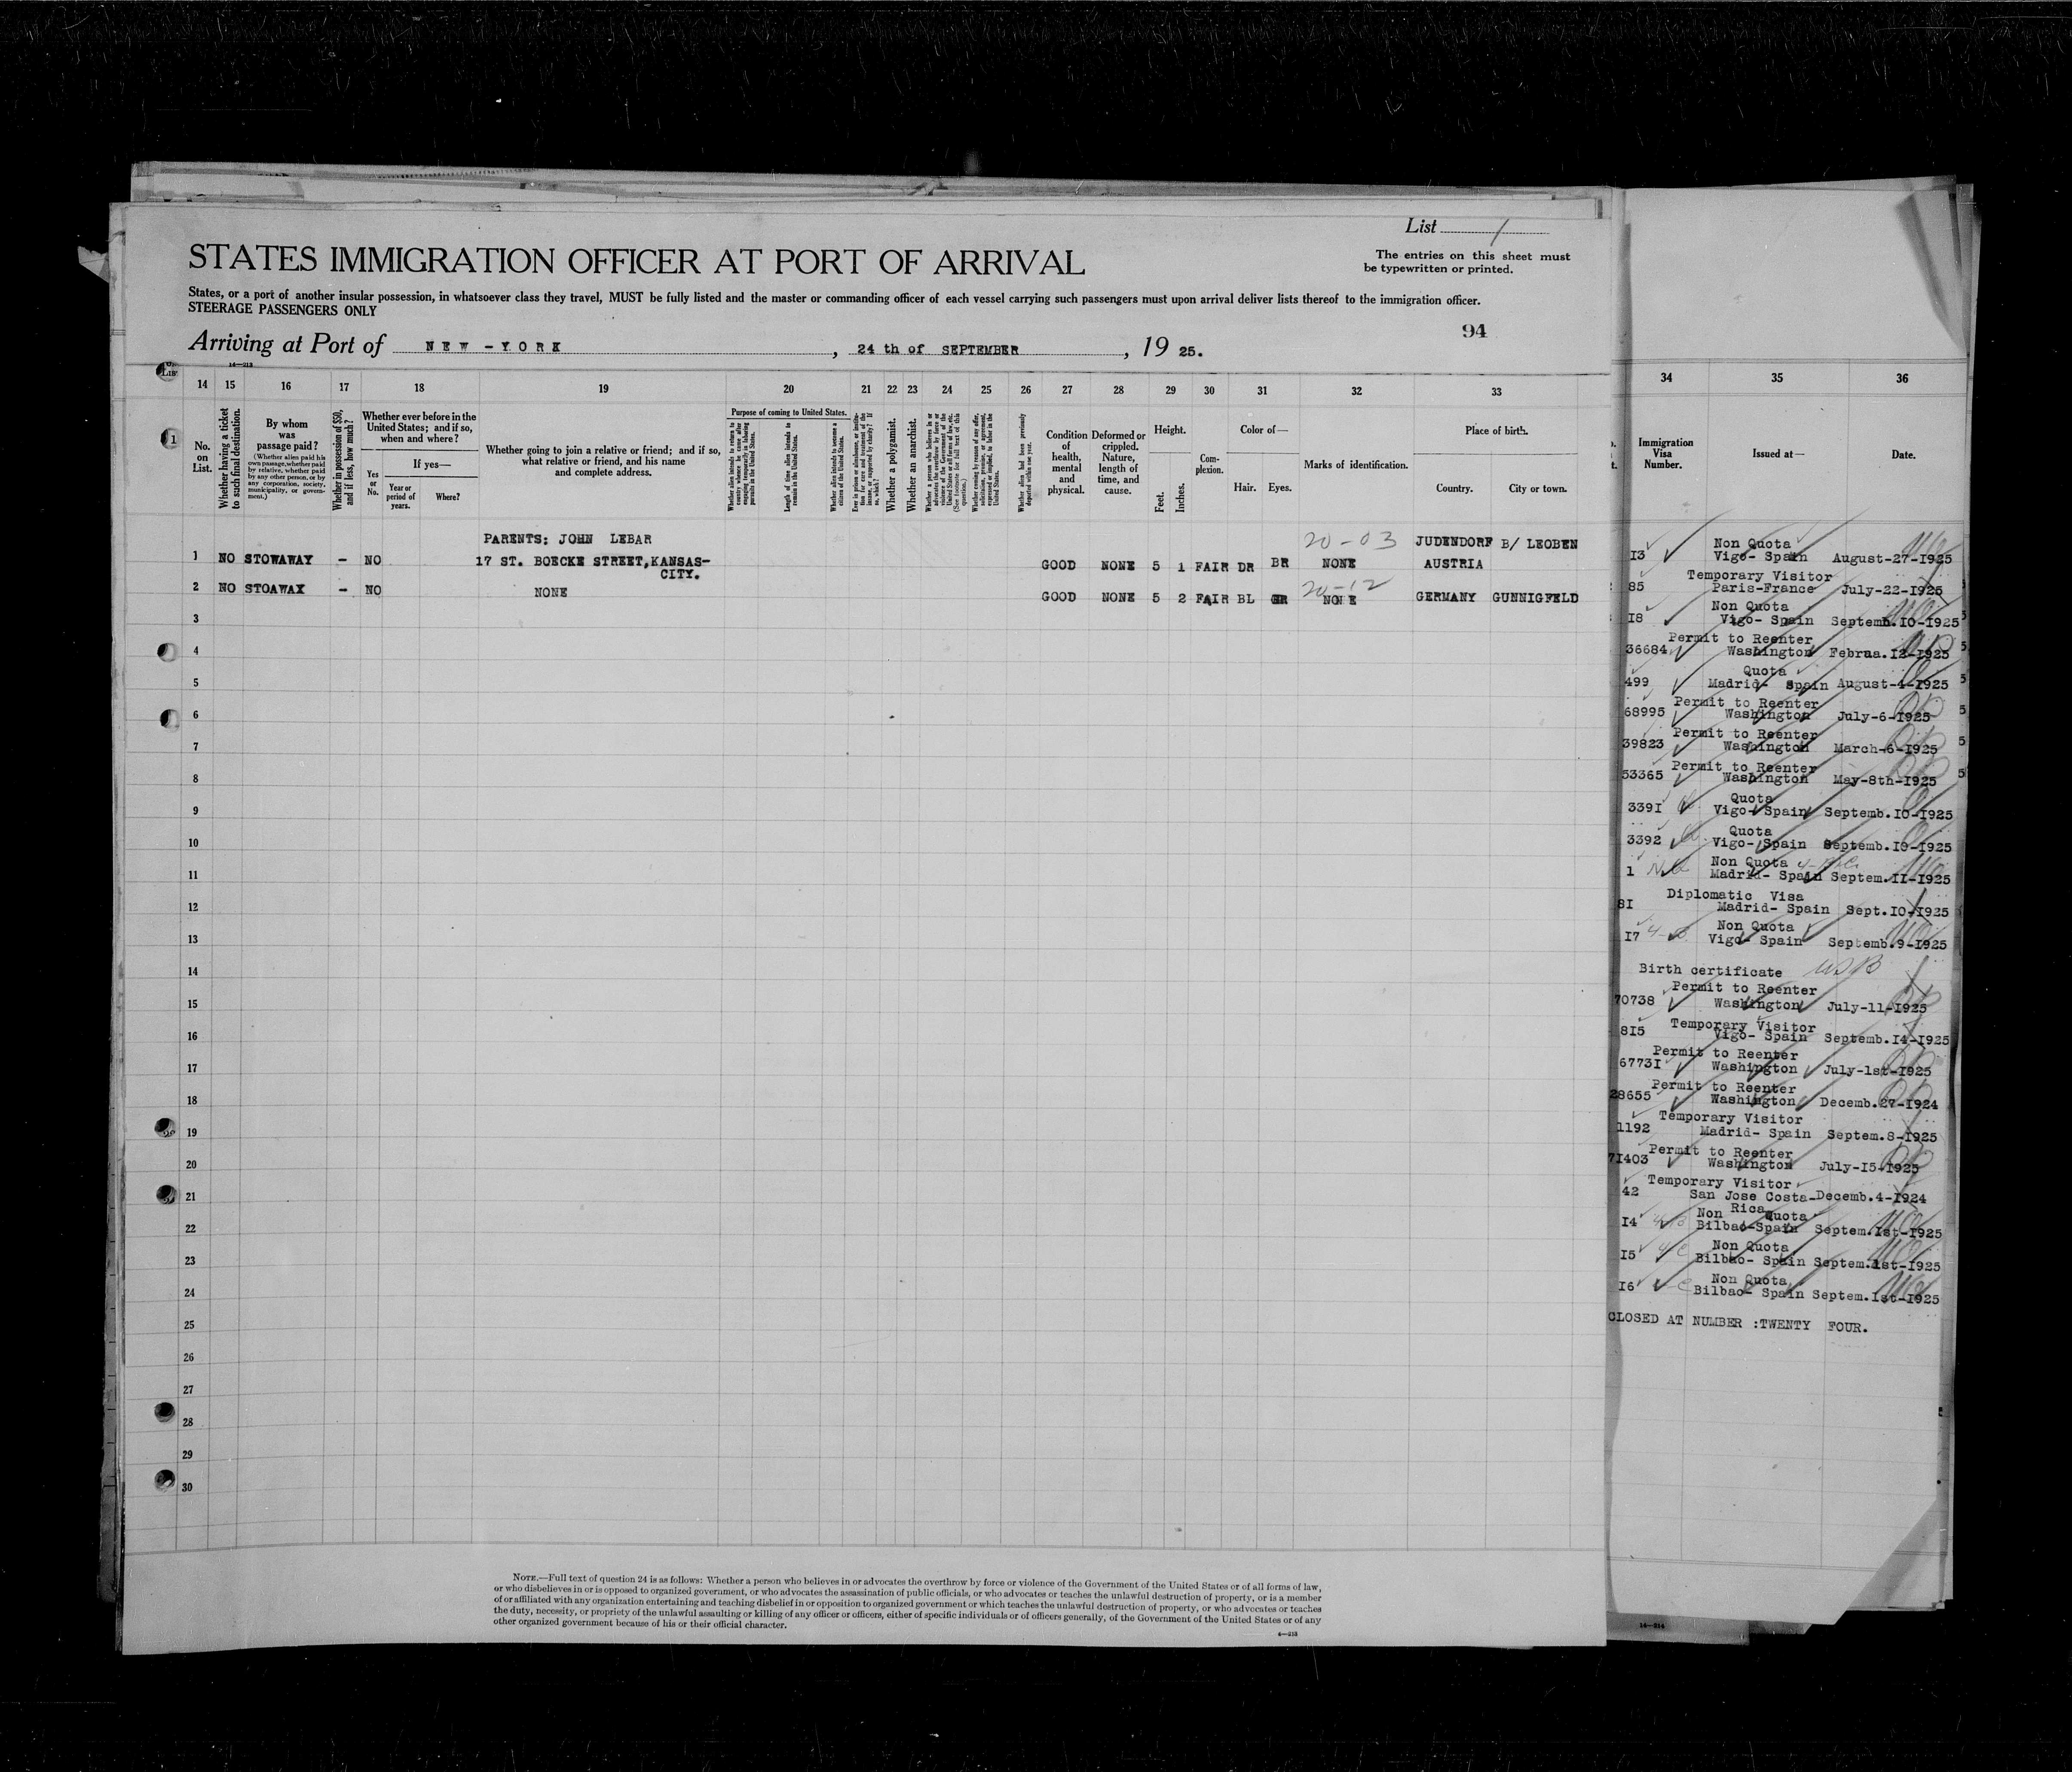 List 1
STATES IMMIGRATION OFFICER AT PORT OF ARRIVAL
The entries on this sheet must
be typewritten or printed.
States, or a port of another insular possession, in whatsoever class they travel, MUST be fully listed and the master or commanding officer of each vessel carrying such passengers must upon arrival deliver lists thereof to the immigration officer.
STEERAGE PASSENGERS ONLY
94
Arriving at Port of NEW-YORK, 24 th of SEPTEMBER, 19 25.
14 15 16 17 18 19 20 21 22 23 24 25 26 27 28 29 30 31 32 33
No.
on
List.
Whether having a ticket
to such final destination.
By whom
was
passage paid?
(Whether alien paid his
own passage, whether paid
by relative, whether paid
by any other person, or by
any corporation, society,
municipality, or govern-
ment.)
Whether in possession of $50,
and if less, how much?
Whether ever before in the
United States; and if so,
when and where?
Yes
or
No.
If yes—
Year or
period of
years.
Where?
Whether going to join a relative or friend; and if so,
what relative or friend, and his name
and complete address.
Purpose of coming to United States.
Length of time alien intends to
remain in the United States.
Whether alien intends to become a
citizen of the United States.
Whether a polygamist.
Whether an anarchist.
Whether alien had been previously
deported within one year.
Condition
of
health,
mental
and
physical.
Deformed or
crippled.
Nature,
length of
time, and
cause.
Height.
Feet.
Inches.
Com-
plexion.
Color of—
Hair. Eyes.
Marks of identification.
Place of birth.
Country. City or town.
PARENTS; JOHN LEBAR 20-03 JUDENDORF B/ LEOBEN
1 NO STOWAWAY - NO 17 ST. BOECKE STREET, KANSAS- GOOD NONE 5 1 FAIR DR BR NONE AUSTRIA
CITY.
20-12
2 NO STOAWAX - NO NONE GOOD NONE 5 2 FAIR BL GR NONE GERMANY GUNNIGFELD
3
4
5
6
7
8
9
10
11
12
13
14
15
16
17
18
19
20
21
22
23
24
25
26
27
28
29
30
NOTE.—Full text of question 24 is as follows: Whether a person who believes in or advocates the overthrow by force or violence of the Government of the United States or of all forms of law,
or who disbelieves in or is opposed to organized government, or who advocates the assassination of public officials, or who advocates or teaches the unlawful destruction of property, or is a member
of or affiliated with any organization entertaining and teaching disbelief in or opposition to organized government or which teaches the unlawful destruction of property, or who advocates or teaches
the duty, necessity, or propriety of the unlawful assaulting or killing of any officer or officers, either of specific individuals or of officers generally, of the Government of the United States or of any
other organized government because of his or their official character.
34 35 36
Immigration
Visa
Number.
Issued at—
Date.
Non Quota
I3 Vigo- Spain August-27-I925
Temporary Visitor
85 Paris-France July-22-I925
Non Quota
I8 Vigo- Spain Septemb.I0-I925
Permit to Reenter
36684 Washington Februa.I2-I925
Quota
499 Madrid- Spain August-4-I925
Permit to Reenter
68995 Washington July-6-I925
Permit to Reenter
39823 Washington March-6-I925
Permit to Reenter
53365 Washington May-8th-I925
Quota
339I Vigo- Spain Septemb.I0-I925
Quota
3392 Vigo- Spain Septemb.I0-I925
Non Quota
1 Madrid- Spain Septem.II-I925
Diplomatic Visa
8I Madrid- Spain Sept.I0-I925
Non Quota
I7 Vigo- Spain Septemb.9-I925
Birth certificate USB
Permit to Reenter
70738 Washington July-11-I925
Temporary Visitor
8I5 Vigo- Spain Septemb.I4-I925
Permit to Reenter
6773I Washington July-1st-I925
Permit to Reenter
28655 Washington Decemb.27-I924
Temporary Visitor
1192 Madrid- Spain Septem.8-I925
Permit to Reenter
7I403 Washington July-I5-I925
Temporary Visitor
42 San Jose Costa- Decemb.4-I924
Rica
Non Quota
I4 Bilbao-Spain Septem.1st-I925
Non Quota
I5 Bilbao- Spain Septem.1st-I925
Non Quota
I6 Bilbao- Spain Septem.1st-I925
CLOSED AT NUMBER :TWENTY FOUR.